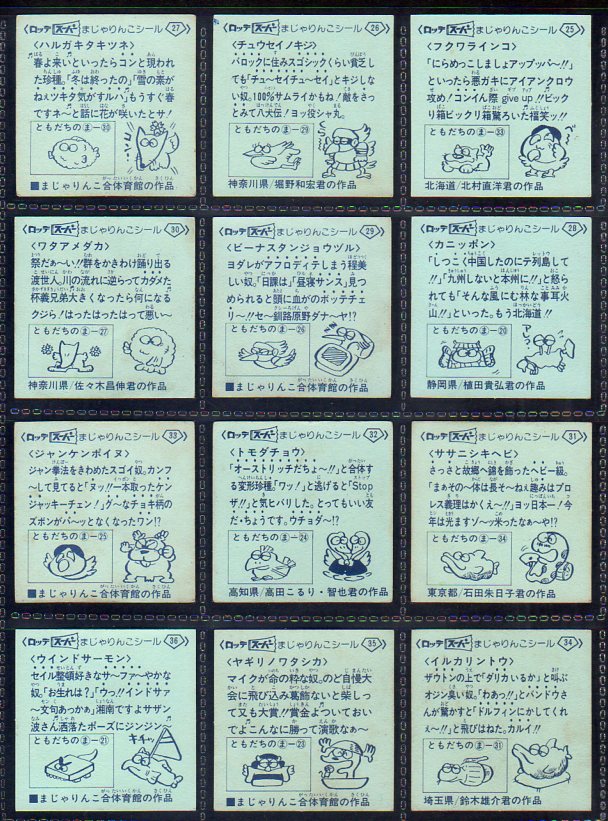 ロッテ スーパー まじゃりんこシール 27
〈ハルガキタキツネ〉
春よ来いといったらコンと現われ
た珍種。「冬は終ったの」「雪の素が
ねぇツキタ気がすルバ」もうすぐ春
ですネ〜と話に花が咲いたとサ!
ともだちの ま—30
■まじゃりんこ合体育館の作品
ロッテ スーパー まじゃりんこシール 26
〈チュウセイノキジ〉
バロックに住みスゴシックくらい貧乏し
てもチュ〜セイチュ〜セイ」とキジしな
い奴。100%サムライかもね!敵をさっ
とみて八犬伝!ヨッ役シャ丸。
ともだちの ま—29
神奈川県/堀野和宏君の作品
ロッテ スーパー まじゃりんこシール 25
〈フクワラインコ〉
「にらめっこしましょアップッパ〜!!」
といったら悪ガキにアイアンクロウ
攻め!コンイん際give up!!ビック
り箱ビックリ箱驚ろいた福笑ッ!!
ともだちの ま—33
北海道/北村直洋君の作品
ロッテ スーパー まじゃりんこシール 30
〈ワタアメダカ〉
祭だぁ〜い!!群をかきわけ踊り出る
渡世人。川の流れに逆らってカタメた
杯義兄弟大きくなったら何になる
クジら!はったはったはって悪い〜
ともだちの ま—27
神奈川県/佐々木昌伸君の作品
ロッテ スーパー まじゃりんこシール 29
〈ビーナスタンジョウヅル〉
ヨダレがアフロディテしまう程美
しい奴。「日課は」「昼寝サンス」見つ
められると頭に血がのボッテチェ
リ〜!!セ〜釧路原野ダナ〜ヤ!?
ともだちの ま—26
■まじゃりんこ合体育館の作品
ロッテ スーパー まじゃりんこシール 28
〈カニッポン〉
「しつこく中国したのにテ列島して」
「九州しないと本州に!!」と怒ら
れても「そんな風にむ林な事耳火
山!!」といった。もう北海道!!
ともだちの ま—20
静岡県/植田貴弘君の作品
ロッテ スーパー まじゃりんこシール 33
〈ジャンケンポイヌ〉
ジャン拳法をきわめたスゴイ奴。カンフ
〜して見てると「ヌッ!!一本取ったケン
ジャッキーチェン!」グ〜なチョキ柄の
ズボンがパ〜ッとなくなったワン!?
ともだちの ま—25
■まじゃりんこ合体育館の作品
ロッテ スーパー まじゃりんこシール 32
〈トモダチョウ〉
「オーストリッチだちょ〜!!」と合体す
る変形珍種。「ワッ!」と逃げると「Stop
ザ!!」と気ヒバリした。とってもいい友
だ・ちょうです。ウチョダ〜!?
ともだちの ま—24
高知県/高田こるり・智也君の作品
ロッテ スーパー まじゃりんこシール 31
〈ササニシキヘビ〉
さっさと故郷へ錦を飾ったヘビー級。
「まぁその〜体は長そ〜ねぇ趣みはプロ
レス義理はかくえ〜!!」ヨッ日本一!今
年は光ますゾ〜ッ米ったなぁ〜や!?
ともだちの ま—34
東京都/石田朱日子君の作品
ロッテ スーパー まじゃりんこシール 36
〈ウインドサーモン〉
セイル整頓好きなサ〜ファ〜やかな
奴。「お生れは?」「ウっ!!インドサァ
〜文句あっかぁ」湘南ですよサザン
波さん洒落たポーズにジンジン〜
ともだちの ま—21
キャッ
■まじゃりんこ合体育館の作品
ロッテ スーパー まじゃりんこシール 35
〈ヤギリノワタシカ〉
マイクが命の粋な奴。のど自慢大
会に飛び込ん葛飾ないと柴しっ
て又も大賞!!賞金よづいておい
でよこんなに勝って演歌なぁ〜
ともだちの ま—23
■まじゃりんこ合体育館の作品
ロッテ スーパー まじゃりんこシール 34
〈イルカリントウ〉
ザウトンの上で「ダリカいるか」と叫ぶ
オジン臭い奴。「わあっ!!」とパンドウさ
んが驚かすと「ドルフィンにかしてくれ
ぇ〜!!」と飛びはねた。カルイ!!
ともだちの ま—31
埼玉県/鈴木雄介君の作品